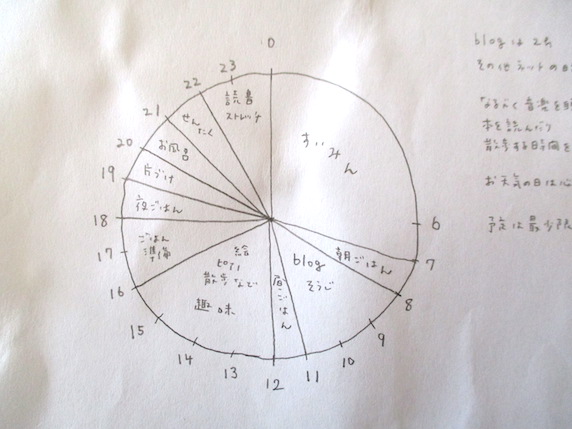 0
6
7
8
9
10
11
12
13
14
15
16
17
18
19
20
21
22
23
すいみん
朝ごはん
blog
そうじ
昼ごはん
絵
ピアノ
散歩など
趣味
ごはん
準備
夜ごはん
片づけ
お風呂
せんたく
読書
ストレッチ
blogは2
その他ネットの
なるべく音楽を
本を読んだり
散歩する時間を
お天気の日は
予定は最少限